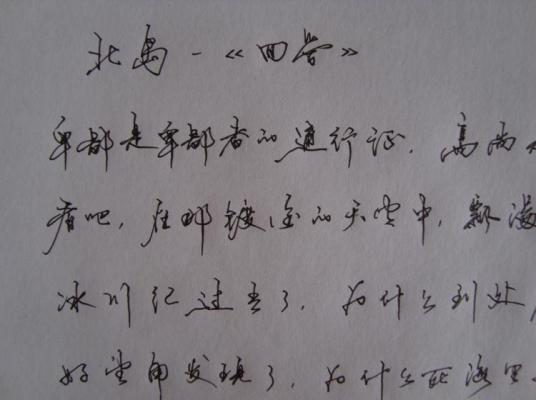 北岛－《回答》
卑鄙是卑鄙者的通行证，高尚
看吧，在那镀金的天空中，飘
冰川纪过去了，为什么到处
好望角发现了，为什么死海里